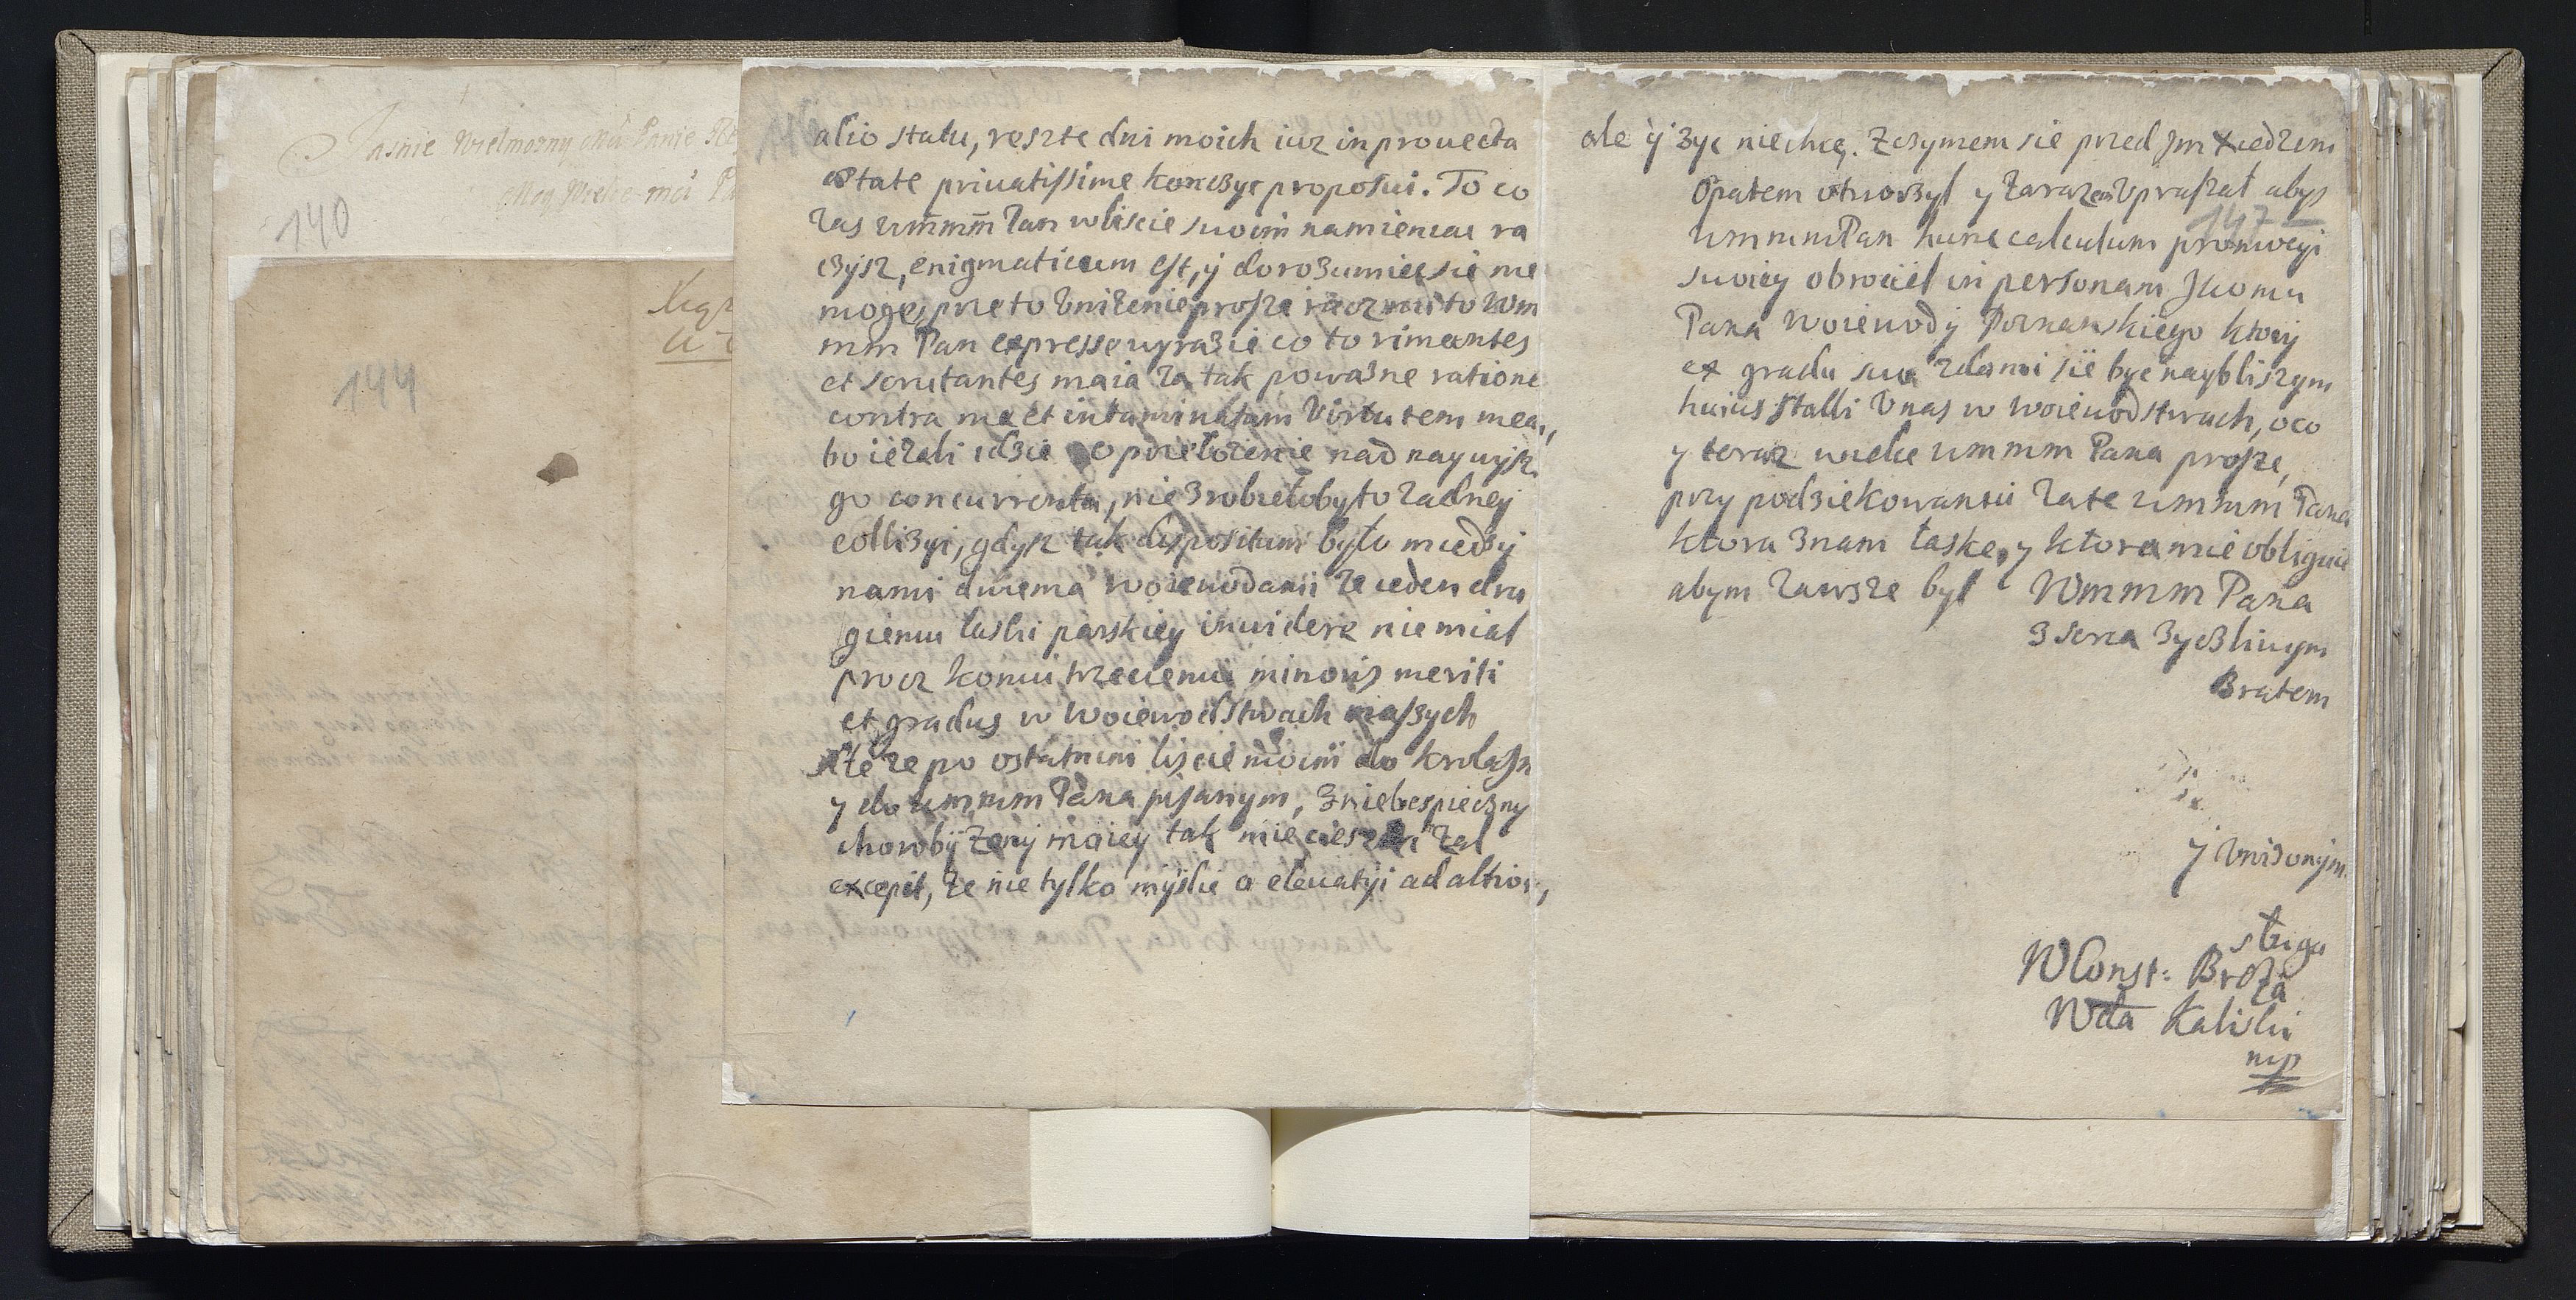 Jasnie Wielmozny Mci Panie
Mcy Wielce mci Pa
140
144
alio statu, reszte dni moich iuz in prouecta
ætate priuatissime konczyc proposui. To co
zas Wmmm Pan w liscie swoim namieniac ra
czysz, enigmaticum est, y dorozumiec sie nie
moge, przeto vnizenie prosze racz mi to Wm
mm Pan expresse wyrazic co to rimantes
et scrutantes maia za tak powazne ratione
contra me et intaminatam Virtutem mea,
bo iezeli idzie o przełozenie nad naywysz
go concurrenta, nie zrobieloby to zadney
collizyi, gdysz tak dispositum było miedzy
nami dwiema Woiewodami ze ieden dru
giemu łaski panskiey inuidere nie miał
procz komu trzeciemu minoris meriti
et gradus w Woiewodstwach naszych
ze po ostatnim liscie moim do Krola Jm
y do Wmmm Pana pisanym, z niebespieczny
choroby zony moiey tak mie ciesz zal
excepit, ze nie tylko myslic o eleuatyi ad altior,
ale y zyc niechcę. Z czymem sie przed Jm Xiedzem
Opatem otworzył y zarazem vpraszał abys
147
Wmmm Pan hunc calculum promocyi
swoiey obrocił in personam Jmomu
Pana Woiewody Poznanskiego ktory
ex gradu suo zdami sie byc naybliszym
huius stalli v nas w Woiewodstwach, oco
y teraz wielce Wmmm Pana prosze,
przy podziekowaniu zate Wmmm Pana
ktora znam łaske, y ktora mie obliguie
abym zawsze był Wmmm Pana
z serca zyczliwym
Bratem
y vnizonym
sługa
W Const: Breza
Wda Kaliski
mp